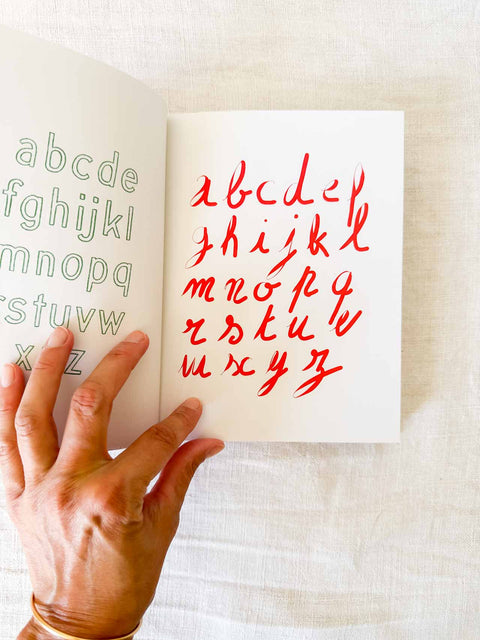 abcde
fghijkl
mnopq
rstuvw
x z
abcdef
ghijkl
mnopq
rstuv
wxyz